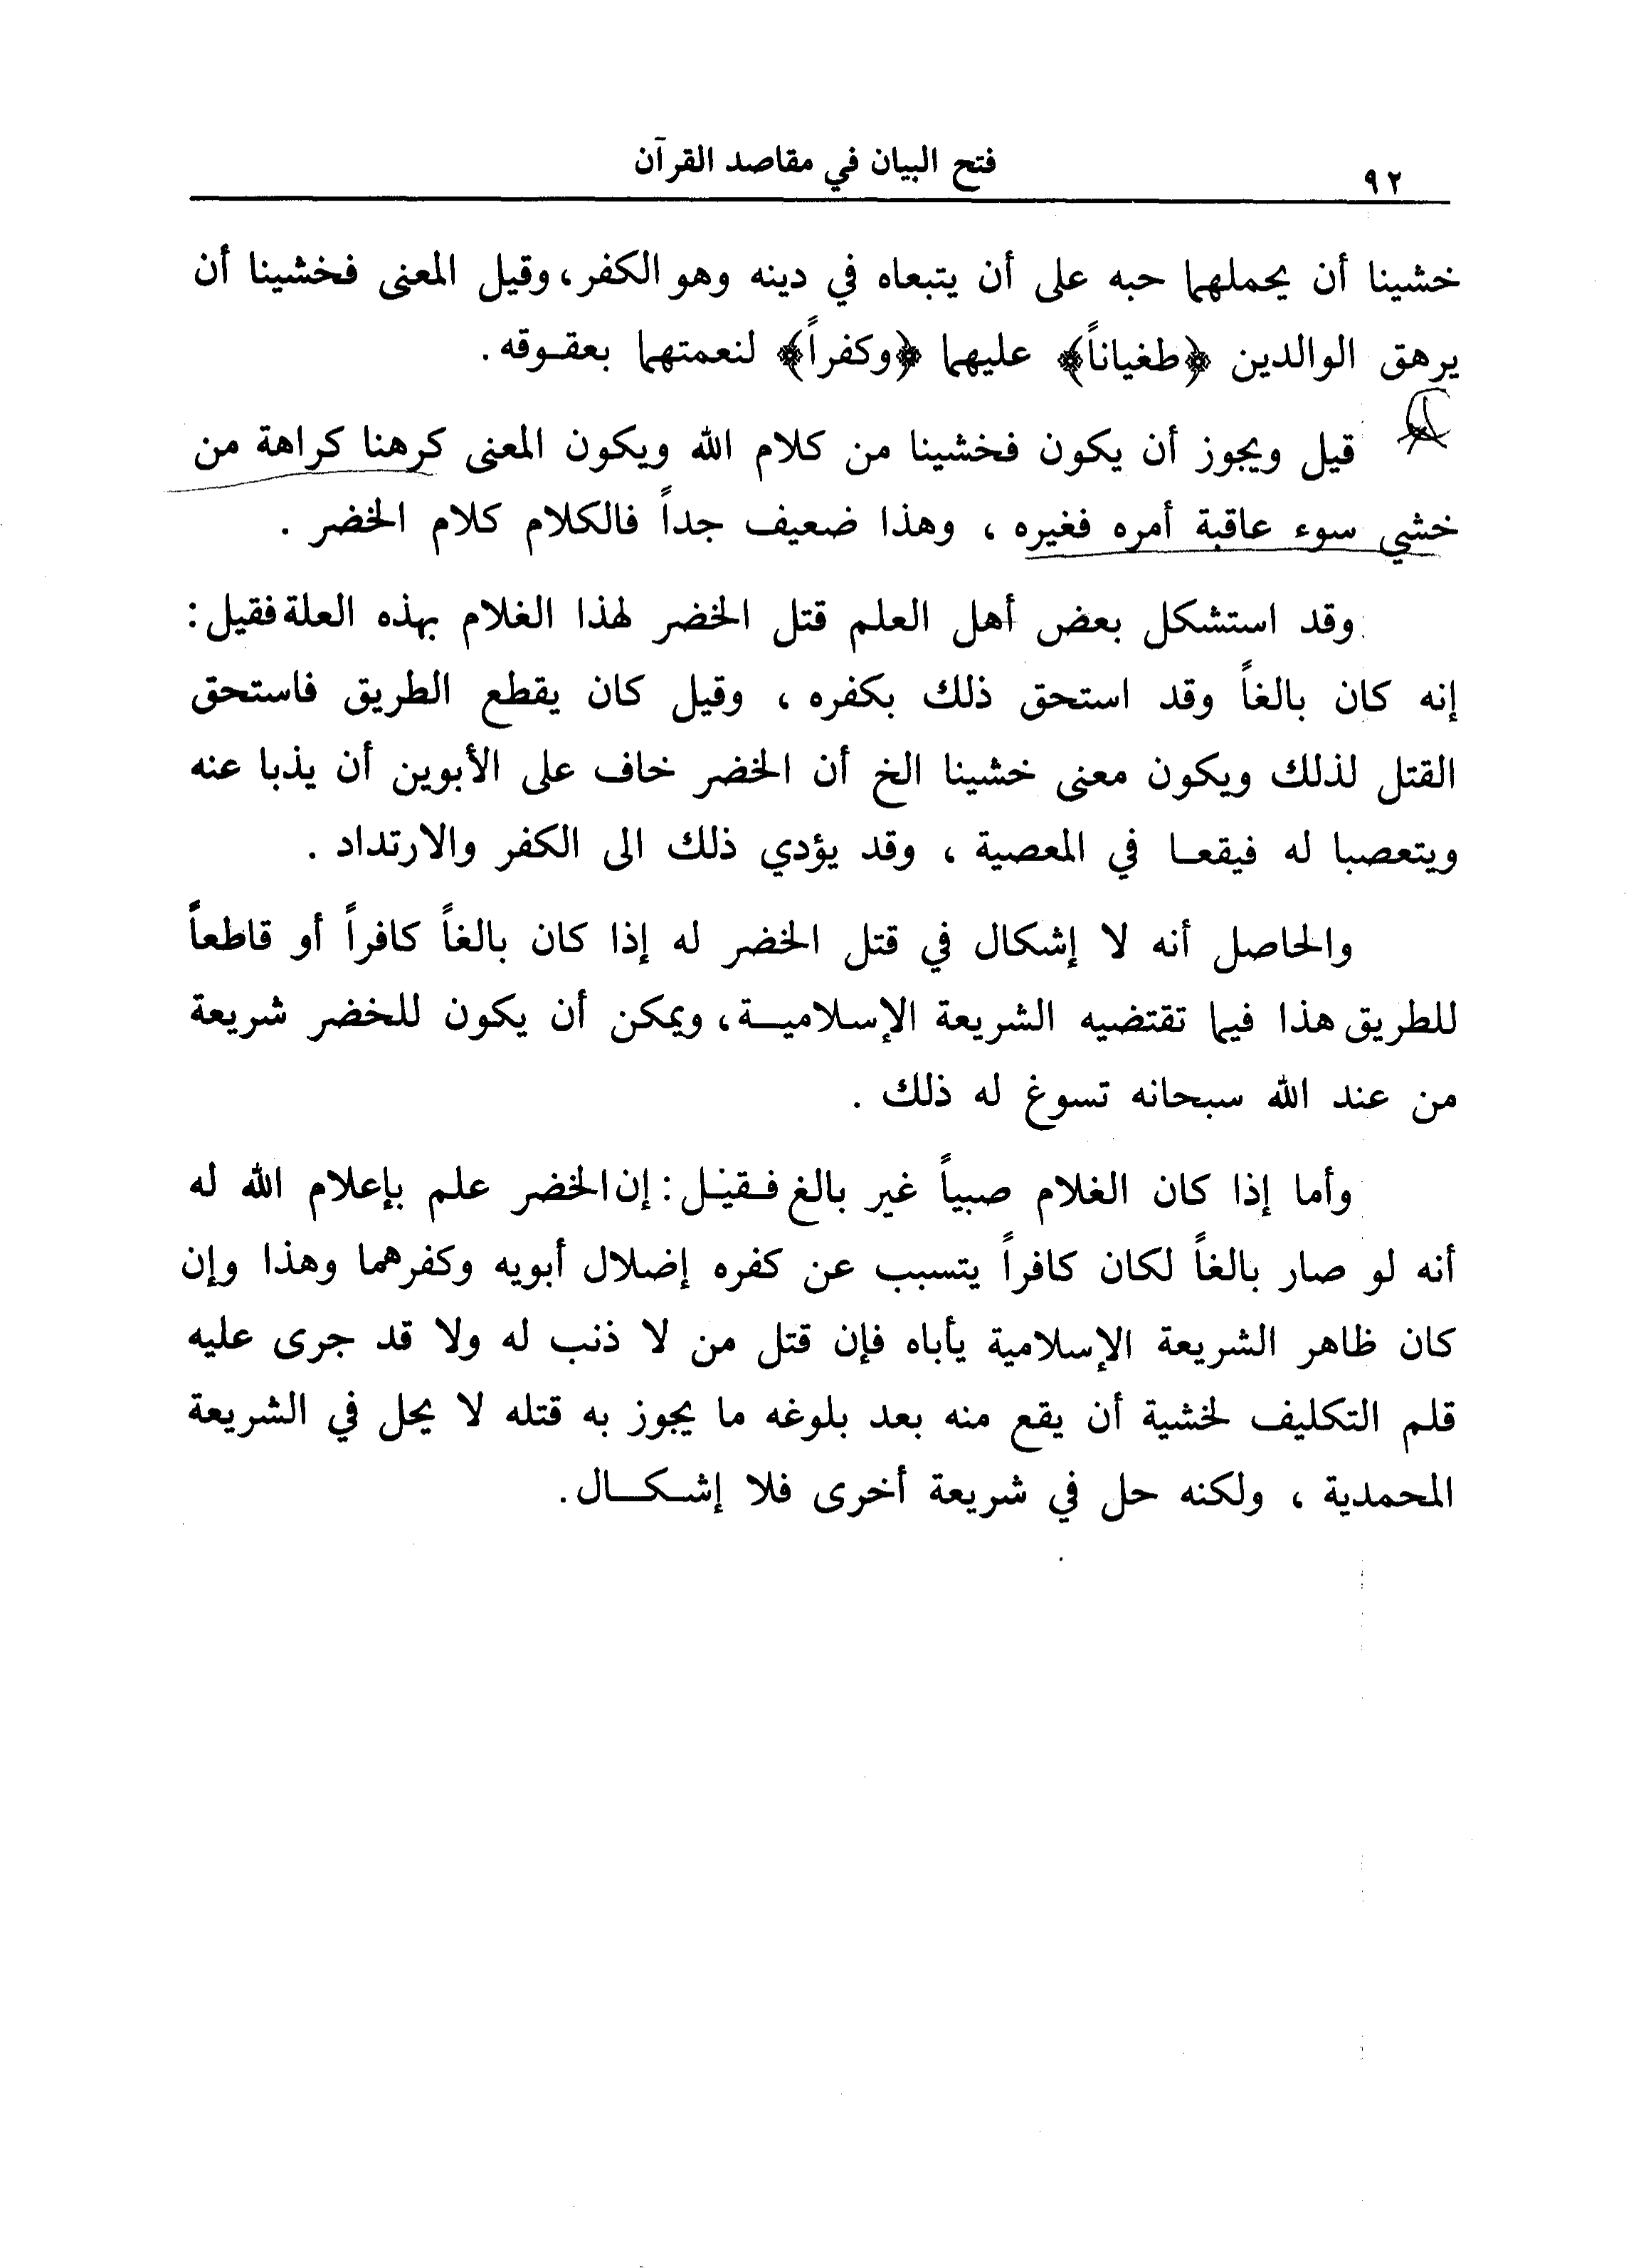 ٩٢
فتح البيان في مقاصد القرآن
خشينا أن يحملهما حبه على أن يتبعاه في دينه وهو الكفر، وقيل المعنى فخشينا أن
يرهق الوالدين ﴿طغياناً﴾ عليهما ﴿وكفراً﴾ لنعمتهما بعقـوقه .
قيل ويجوز أن يكون فخشينا من كلام الله ويكون المعنى كرهنا كراهة من
خشي سوء عاقبة أمره فغيره ، وهذا ضعيف جداً فالكلام كلام الخضر .
وقد استشكل بعض أهل العلم قتل الخضر لهذا الغلام بهذه العلة فقيل :
إنه كان بالغاً وقد استحق ذلك بكفره ، وقيل كان يقطع الطريق فاستحق
القتل لذلك ويكون معنى خشينا الخ أن الخضر خاف على الأبوين أن يذبا عنه
ويتعصبا له فيقعـا في المعصية ، وقد يؤدي ذلك الى الكفر والارتداد .
والحاصل أنه لا إشكال في قتل الخضر له إذا كان بالغاً كافراً أو قاطعاً
للطريق هذا فيما تقتضيه الشريعة الإسلاميـــة، ويمكن أن يكون للخضر شريعة
من عند الله سبحانه تسوغ له ذلك .
وأما إذا كان الغلام صبياً غير بالغ فـقيـل : إن الخضر علم بإعلام الله له
أنه لو صار بالغاً لكان كافراً يتسبب عن كفره إضلال أبويه وكفرهما وهذا وإن
كان ظاهر الشريعة الإسلامية يأباه فإن قتل من لا ذنب له ولا قد جرى عليه
قلم التكليف لخشية أن يقع منه بعد بلوغه ما يجوز به قتله لا يحل في الشريعة
المحمدية ، ولكنه حل في شريعة أخرى فلا إشـكـــال .